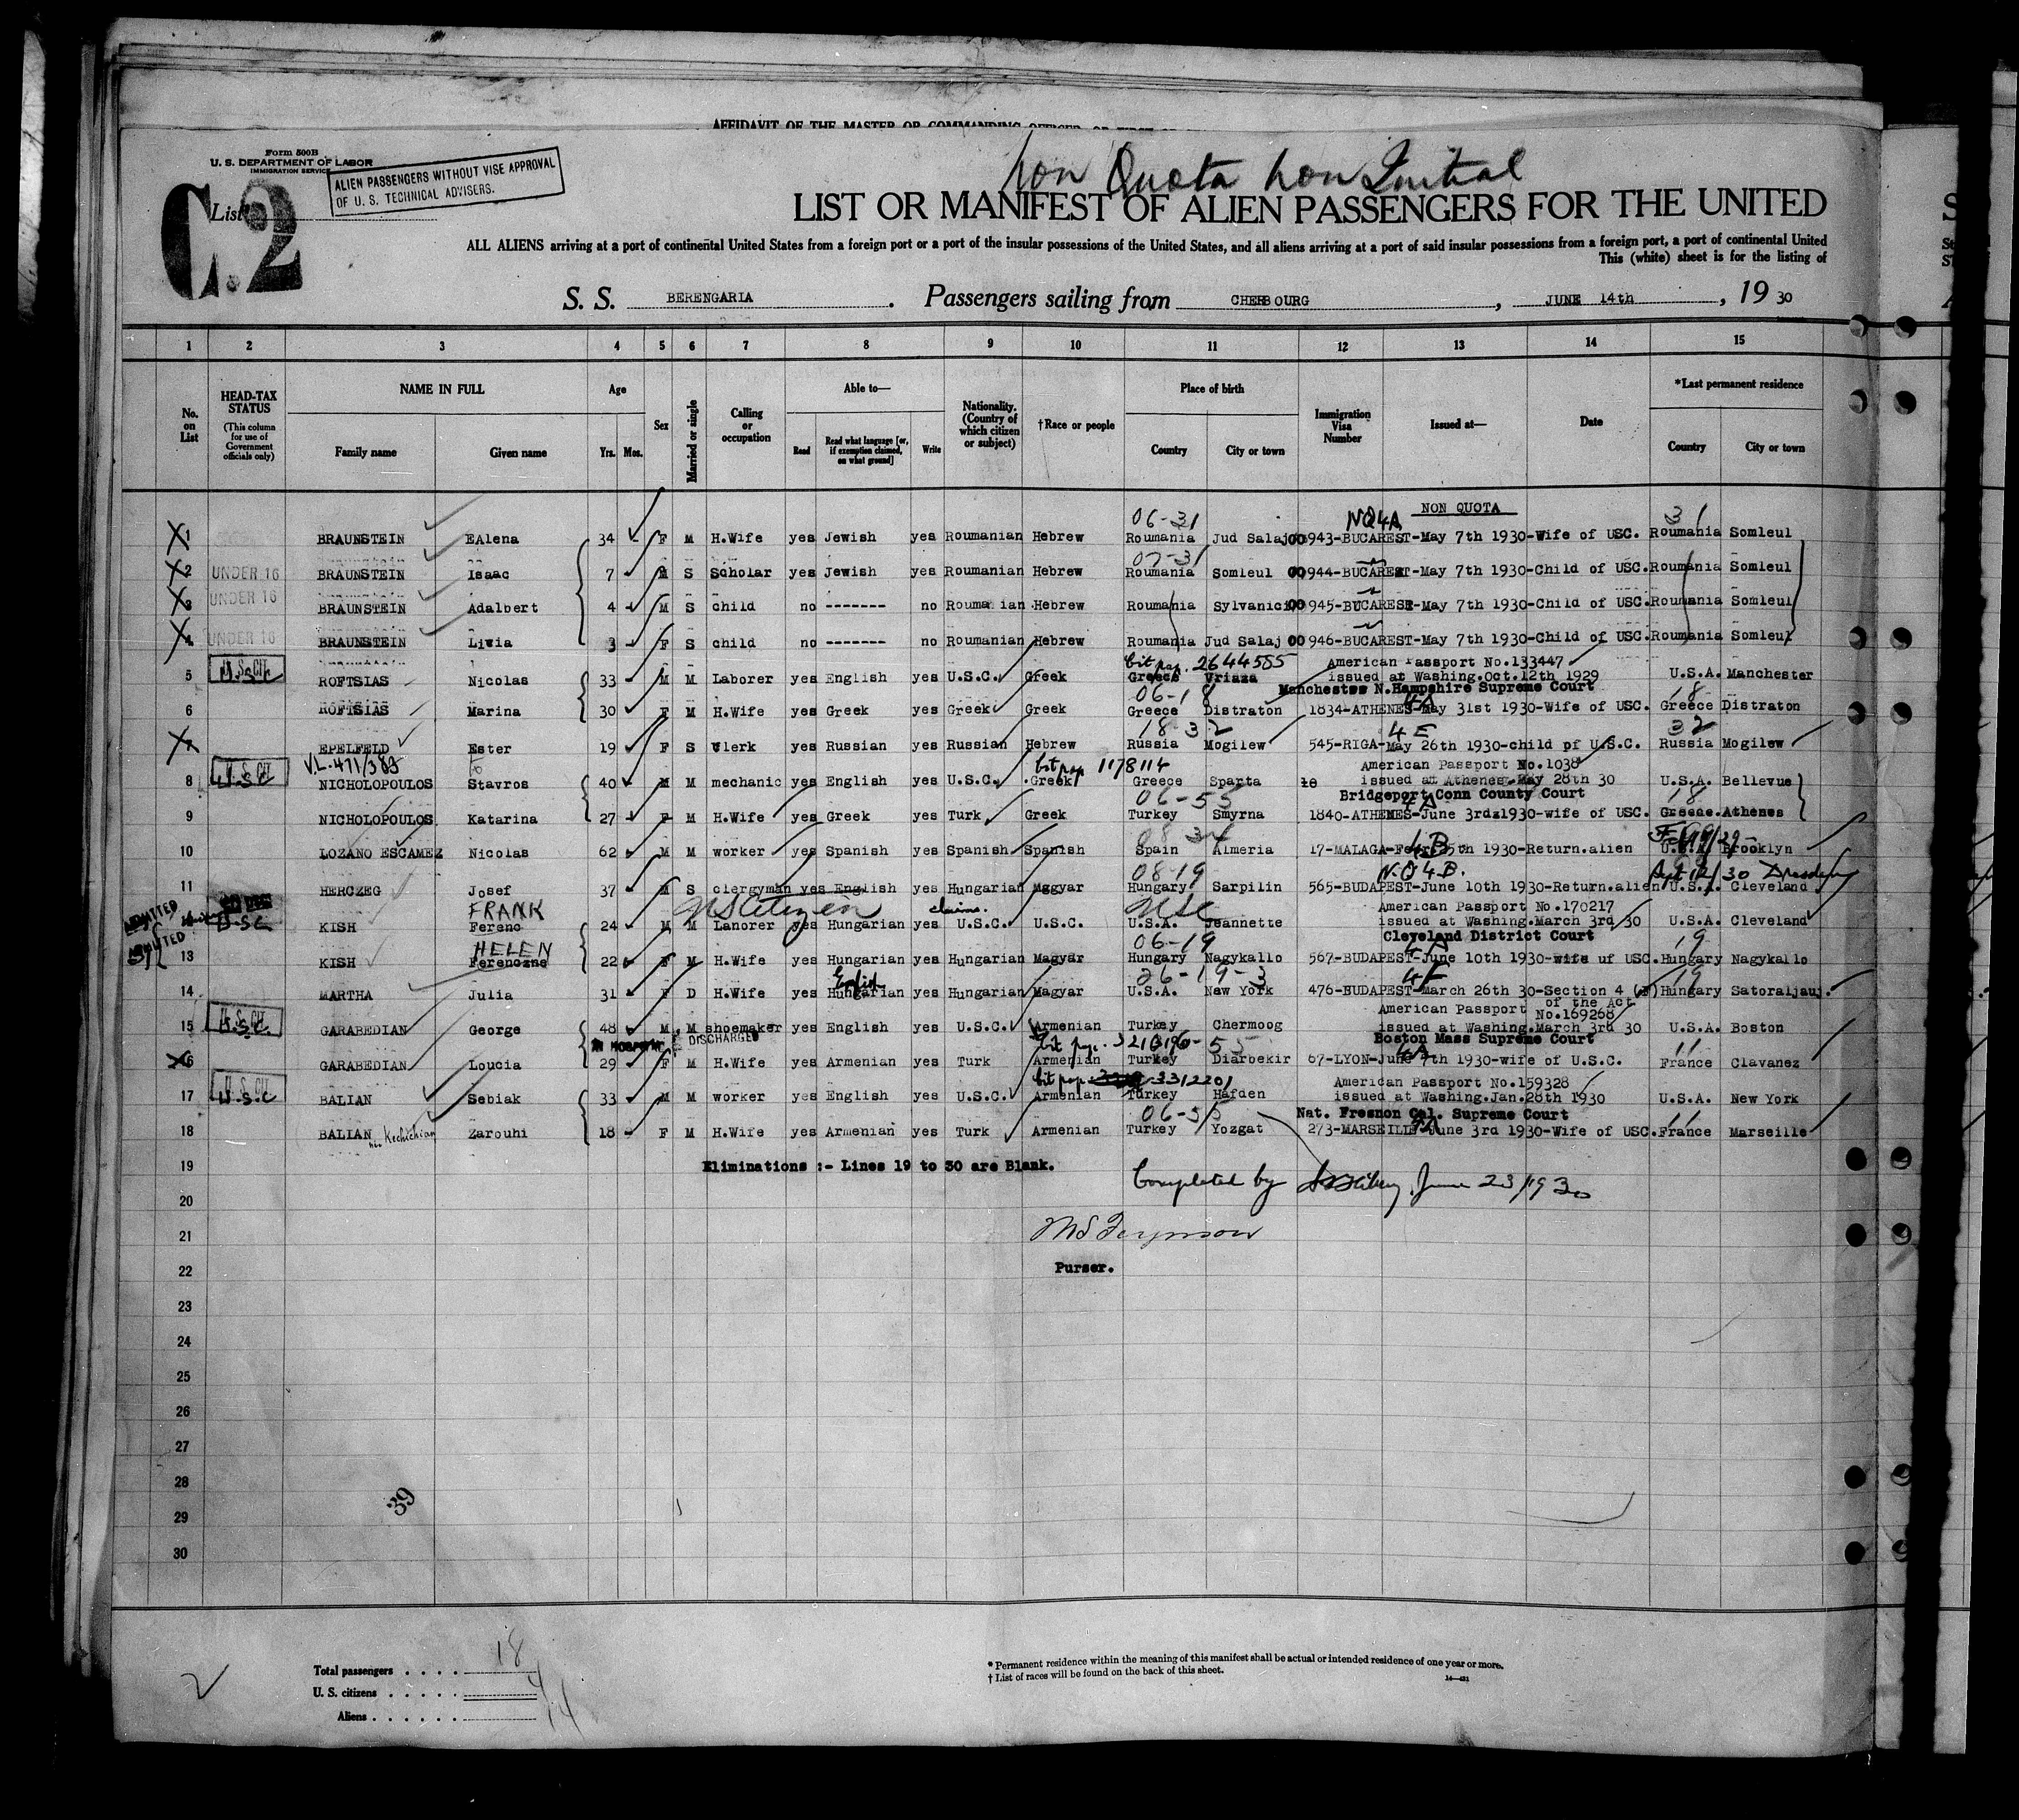 AFFIDAVIT OF THE MASTER OR COMMANDING OFFICER, OR FIRST
Form 500B
U. S. DEPARTMENT OF LABOR
IMMIGRATION SERVICE
ALIEN PASSENGERS WITHOUT VISE APPROVAL
OF U. S. TECHNICAL ADVISERS.
Non Quota Non Initial
List
C.2
LIST OR MANIFEST OF ALIEN PASSENGERS FOR THE UNITED
ALL ALIENS arriving at a port of continental United States from a foreign port or a port of the insular possessions of the United States, and all aliens arriving at a port of said insular possessions from a foreign port, a port of continental United
This (white) sheet is for the listing of
S. S. BERENGARIA. Passengers sailing from CHERBOURG, JUNE 14th, 1930
1 2 3 4 5 6 7 8 9 10 11 12 13 14 15
No. on List
HEAD-TAX STATUS (This column for use of Government officials only)
NAME IN FULL
Family name Given name
Age
Yrs. Mos.
Sex
Married or single
Calling or occupation
Able to—
Read Read what language [or, if exemption claimed, on what ground] Write
Nationality. (Country of which citizen or subject)
†Race or people
Place of birth
Country City or town
Immigration Visa Number
Issued at—
Date
*Last permanent residence
Country City or town
NON QUOTA
06-31 NQ4A 31
1 BRAUNSTEIN EAlena 34 F M H.Wife yes Jewish yes Roumanian Hebrew Roumania Jud Salaj 00943-BUCAREST-May 7th 1930-Wife of USC. Roumania Somleul
07-31
2 UNDER 16 BRAUNSTEIN Isaac 7 M S Scholar yes Jewish yes Roumanian Hebrew Roumania Somleul 00944-BUCAREST-May 7th 1930-Child of USC. Roumania Somleul
3 UNDER 16 BRAUNSTEIN Adalbert 4 M S child no ------- no Rouma ian Hebrew Roumania Sylvanici 00945-BUCAREST-May 7th 1930-Child of USC. Roumania Somleul
4 UNDER 16 BRAUNSTEIN Livia 3 F S child no ------- no Roumanian Hebrew Roumania Jud Salaj 00946-BUCAREST-May 7th 1930-Child of USC. Roumania Somleul
2644585 American Passport No.133447
5 U.S. CIT. ROFTSIAS Nicolas 33 M M Laborer yes English yes U.S.C. Greek Greece Vriaza issued at Washing.Oct.12th 1929 U.S.A. Manchester
06-18 Manchester N.Hampshire Supreme Court 18
6 ROFTSIAS Marina 30 F M H.Wife yes Greek yes Greek Greek Greece Distraton 1834-ATHENES-May 31st 1930-Wife of USC. Greece Distraton
18-32 4E 32
7 EPELFELD Ester 19 F S Clerk yes Russian yes Russian Hebrew Russia Mogilew 545-RIGA-May 26th 1930-child pf U.S.C. Russia Mogilew
V.L.-471/383 1178114 American Passport No.1038
8 U.S. CIT. U.S.C NICHOLOPOULOS Stavros 40 M M mechanic yes English yes U.S.C. Greek Greece Sparta issued at Athenes May 28th 30 U.S.A. Bellevue
06-55 Bridgeport Conn County Court 18
9 NICHOLOPOULOS Katarina 27 F M H.Wife yes Greek yes Turk Greek Turkey Smyrna 1840-ATHENES-June 3rd 1930-wife of USC. Greece Athenes
10 LOZANO ESCAMEZ Nicolas 62 M M worker yes Spanish yes Spanish Spanish Spain Almeria 17-MALAGA- 1930-Return.alien U.S.A. Brooklyn
08-19 N.Q4B.
11 HERCZEG Josef 37 M S clergyman yes English yes Hungarian Magyar Hungary Sarpilin 565-BUDAPEST-June 10th 1930-Return.alien U.S.A. Cleveland
FRANK US Citizen claims. USC American Passport No.170217
12 U.S.C KISH Ferenc 24 M M Lanorer yes Hungarian yes U.S.C. U.S.C. U.S.A. Jeannette issued at Washing.March 3rd 30 U.S.A. Cleveland
ADMITTED
HELEN 06-19 Cleveland District Court 19
13 KISH Ferenczne 22 F M H.Wife yes Hungarian yes Hungarian Magyar Hungary Nagykallo 567-BUDAPEST-June 10th 1930-wife of USC. Hungary Nagykallo
English 26-19-3 4F 19
14 MARTHA Julia 31 F D H.Wife yes Hungarian yes Hungarian Magyar U.S.A. New York 476-BUDAPEST-March 26th 30-Section 4 (F) Hungary Satoraljauj.
of the Act
American Passport No.169268
15 U.S. CIT. U.S.C. GARABEDIAN George 48 M M shoemaker yes English yes U.S.C. Armenian Turkey Chermoog issued at Washing.March 3rd 30 U.S.A. Boston
DISCHARGED Boston Mass Supreme Court
16 GARABEDIAN Loucia 29 F M H.Wife yes Armenian yes Turk Armenian Turkey Diarbekir 67-LYON-June 7th 1930-wife of U.S.C. France Clavanez
3312201 American Passport No.159328
17 U.S. CIT. U.S.C BALIAN Sebiak 33 M M worker yes English yes U.S.C. Armenian Turkey Hafden issued at Washing.Jan.28th 1930 U.S.A. New York
06-55 Nat. Fresnon Cal. Supreme Court
18 BALIAN Kechichian Zarouhi 18 F M H.Wife yes Armenian yes Turk Armenian Turkey Yozgat 273-MARSEILLE June 3rd 1930-Wife of USC. France Marseille
19 Eliminations :- Lines 19 to 30 are Blank.
Completed by June 23/1930
20
21
22 Purser.
23
24
25
26
27
28
39
29
30
Total passengers . . . . 18
U. S. citizens . . . . . 4
Aliens . . . . . . 14
* Permanent residence within the meaning of this manifest shall be actual or intended residence of one year or more.
† List of races will be found on the back of this sheet.